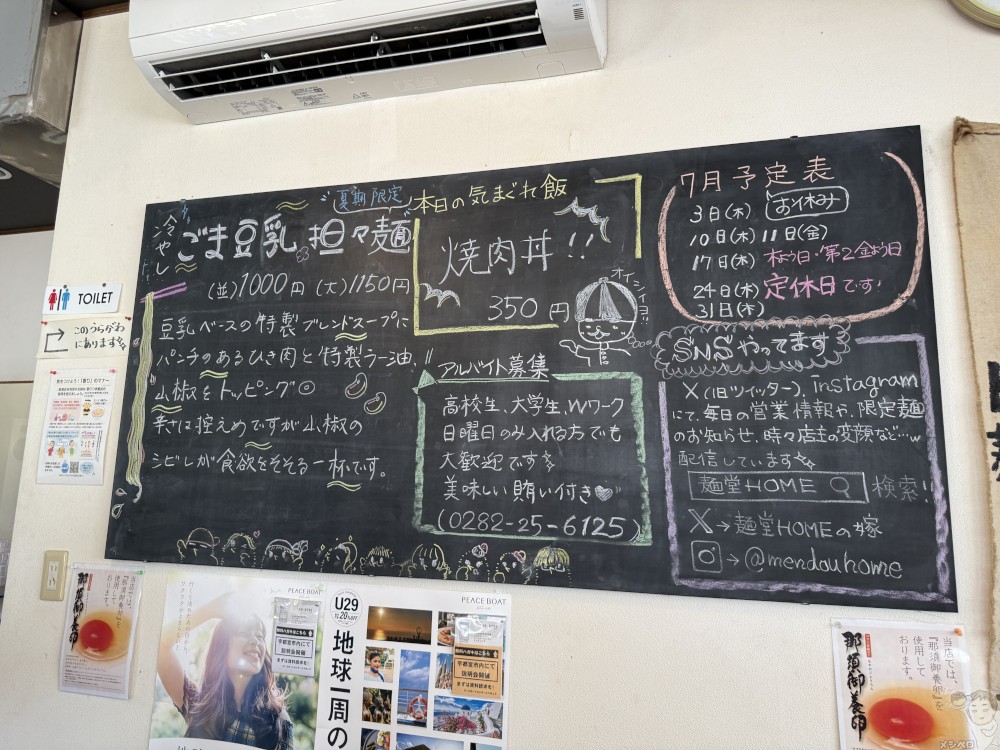 夏期限定
冷やし
ごま豆乳担々麺
(並)1000円 (大)1150円
豆乳ベースの特製ブレンドスープに
パンチのあるひき肉と特製ラー油、
山椒をトッピング◎
辛さは控えめですが山椒の
シビレが食欲をそそる一杯です。
本日の気まぐれ飯
焼肉丼!!
350円
オイシイヨ!!
アルバイト募集
高校生、大学生、Wワーク
日曜日のみ入れる方でも
大歓迎です
美味しい賄い付き♥
(0282-25-6125)
7月予定表
3日(木) お休み
10日(木) 11日(金)
17日(木) 木よう日・第2金よう日
24日(木) 定休日です!
31日(木)
SNSやってます
X(旧ツイッター)、instagram
にて、毎日の営業情報や、限定麺
のお知らせ、時々店主の変顔など…w
配信しています
麺堂HOME 検索!
X→麺堂HOMEの嫁
→@mendouhome
TOILET
このうらがわ
にあります
当店では、
『那須御養卵』を
使用して
おります。
那須御養卵
PEACE BOAT
宇都宮市内にて
説明会開催
U29
地球一周の
PEACE BOAT
宇都宮市内にて
説明会開催
当店では、
『那須御養卵』を
使用して
おります。
那須御養卵
メシペロ